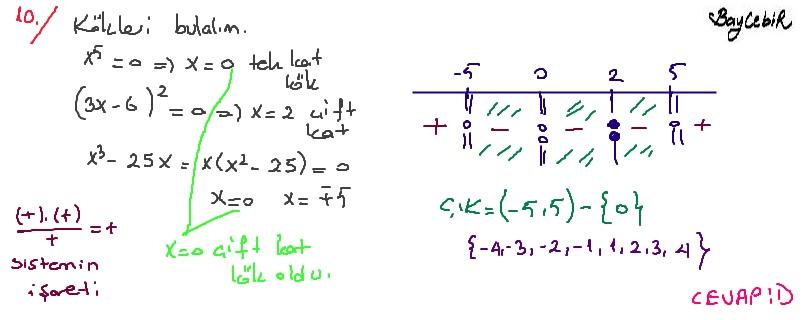 10./ Kökleri bulalım.
x⁵ = 0 => x = 0 tek kat kök
(3x - 6)² = 0 => x = 2 çift kat
x³ - 25x = x(x² - 25) = 0
x = 0 x = ∓5
x = 0 çift kat kök oldu.
(+).(+)
+
= +
sistemin
işareti
BayCebiR
-5 0 2 5
+ - - - +
Ç.K = (-5, 5) - {0}
{-4, -3, -2, -1, 1, 2, 3, 4}
CEVAP: D